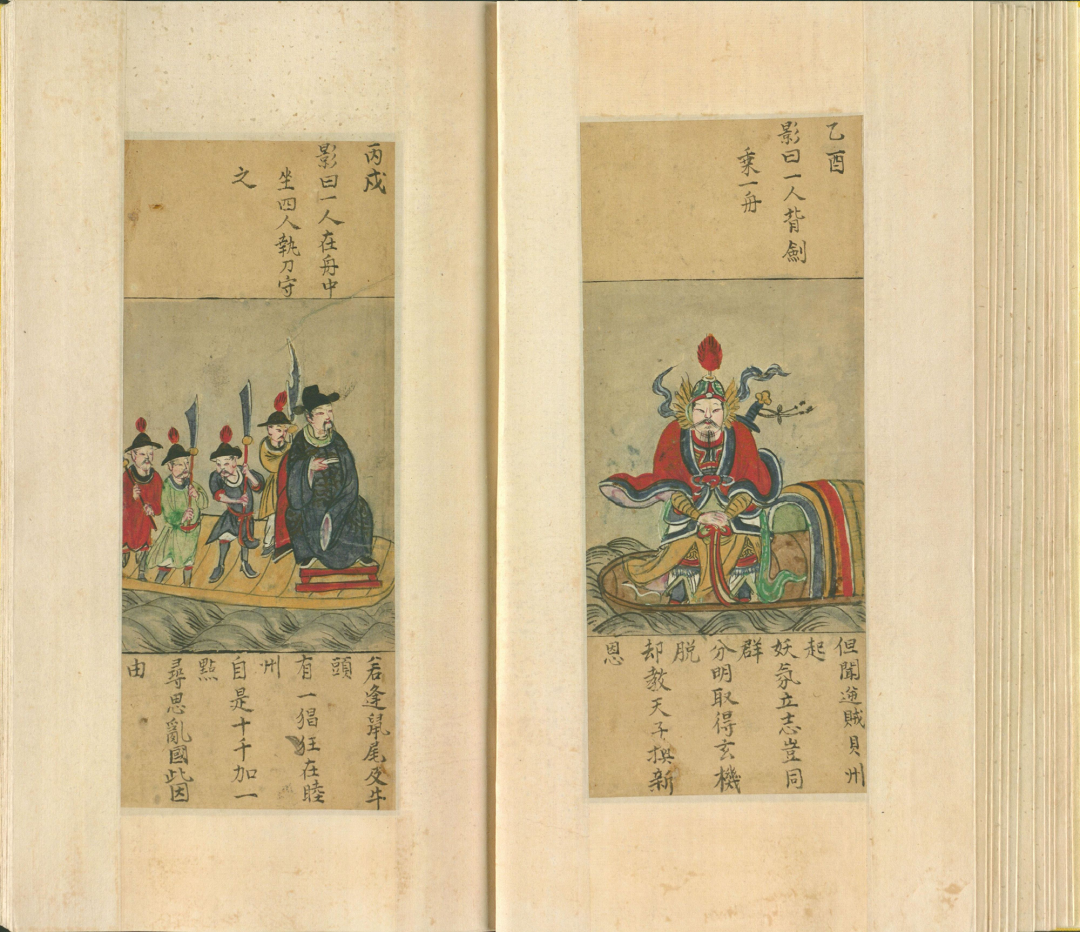 乙酉
影曰一人背劍
乘一舟
但聞逆賊貝州
起
妖氛立志豈同
群
分明取得玄機
脫
却教天子換新
恩
丙戌
影曰一人在舟中
坐四人執刀守
之
若逢鼠尾及牛
頭
有一猖狂在睦
州
自是十千加一
點
尋思亂國此因
由